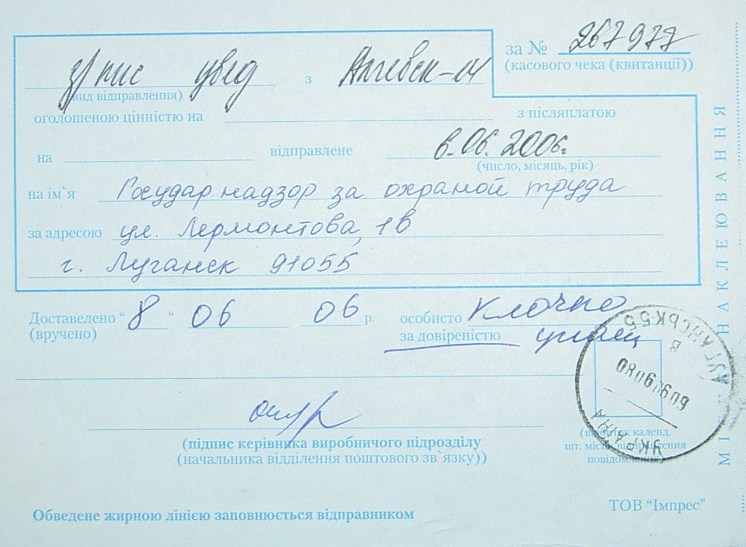 за № 267977
(касового чека (квитанції))
з/пис увед з Алчевск-14
(вид відправлення)
оголошеною цінністю на з післяплатою
на відправлене 6.06.2006г
(число, місяць, рік)
на ім`я Государ.надзор за охраной труда
за адресою ул. Лермонтова, 1в
г. Луганск 91055
Доставлено "8" 06 06 р. особисто Клочко
(вручено) за довіреністю
(підпис керівника виробничого підрозділу
(начальника відділення поштового зв`язку))
календ.
шт. місця відправлення
повідомлення)
ЛУГАНСЬК 55
В
УКРАЇНА
Обведене жирною лінією заповнюється відправником
ТОВ "Імпрес"
НАКЛЕЮВАННЯ